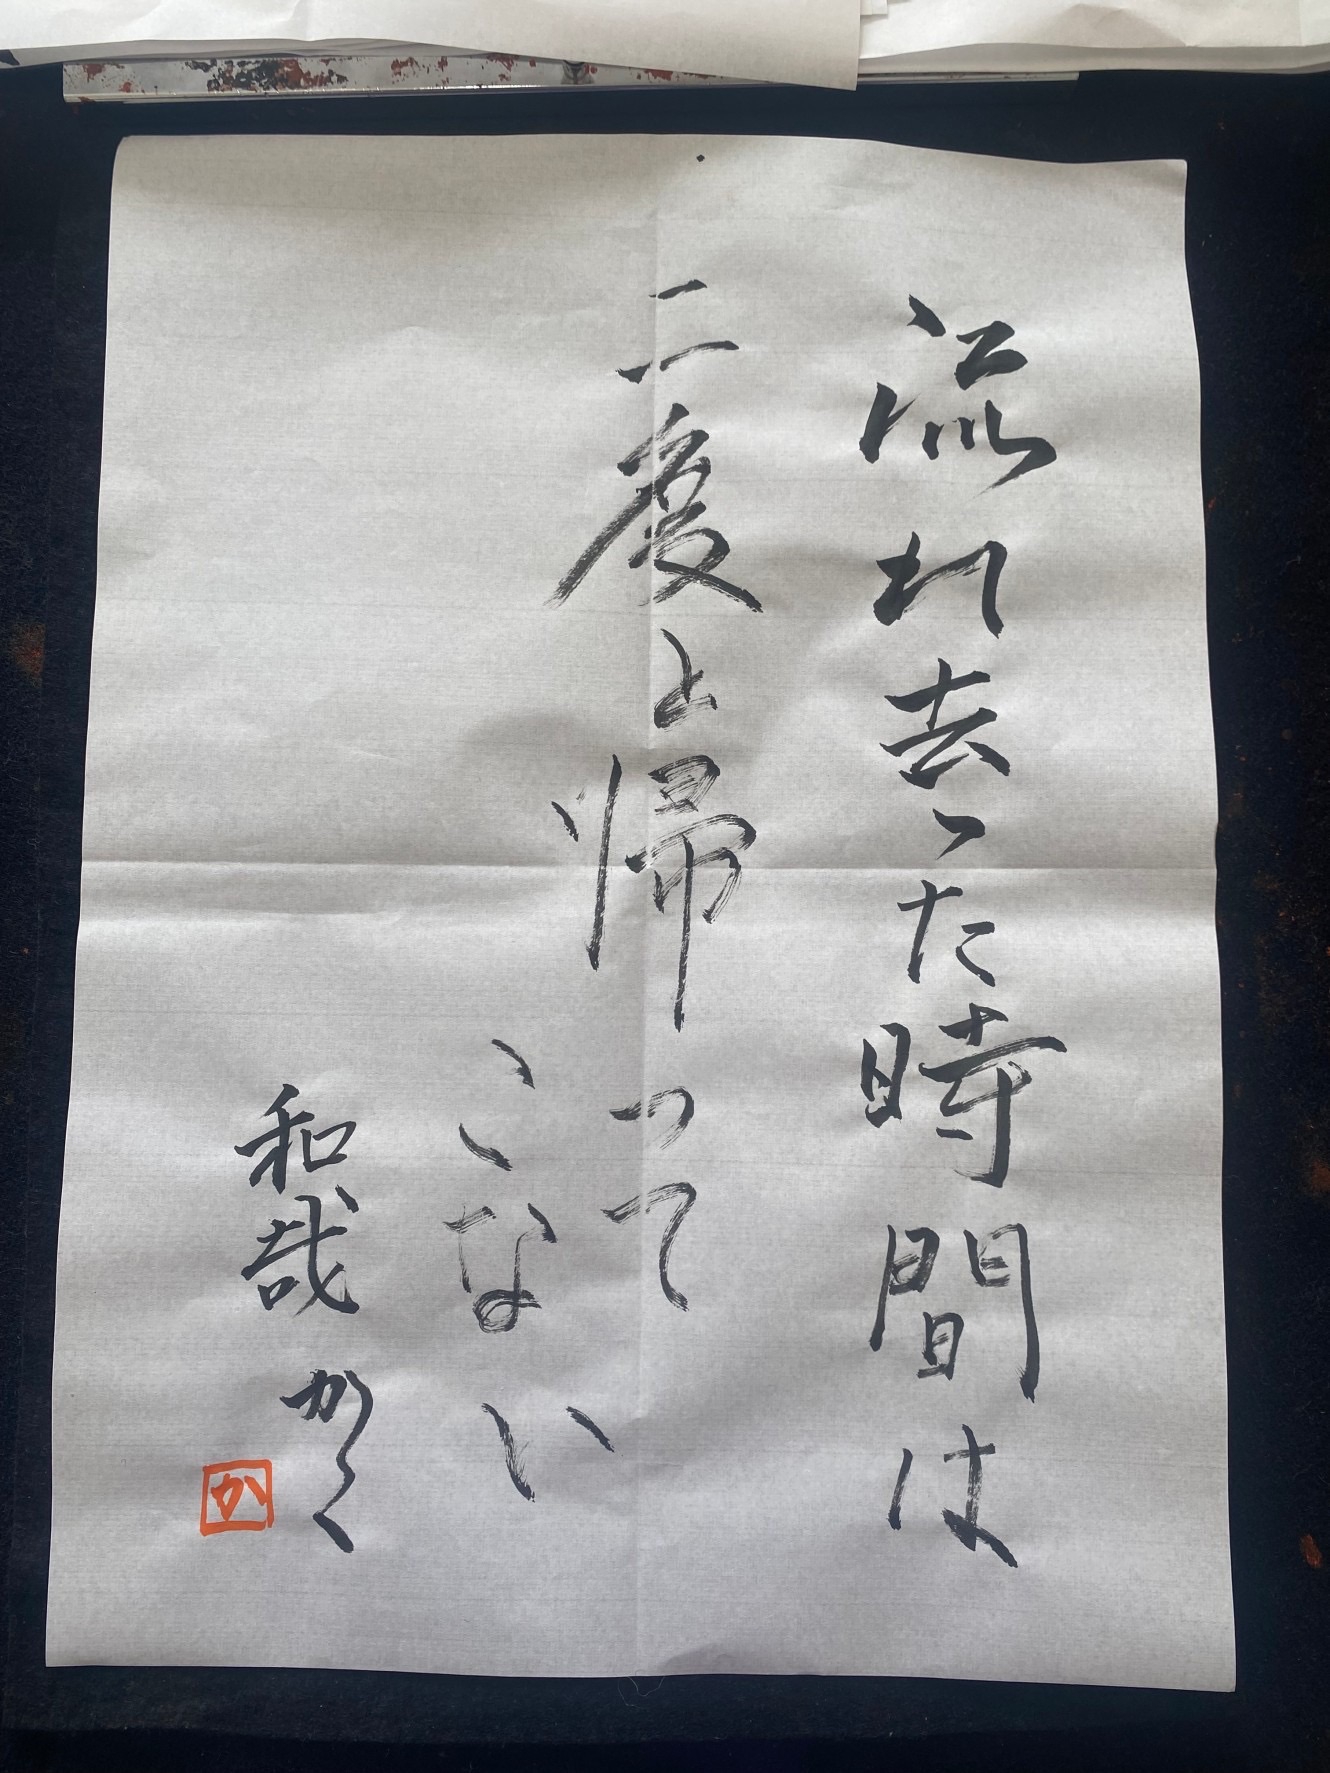 流れ去った時間は
二度と帰って
こない
和哉かく
か